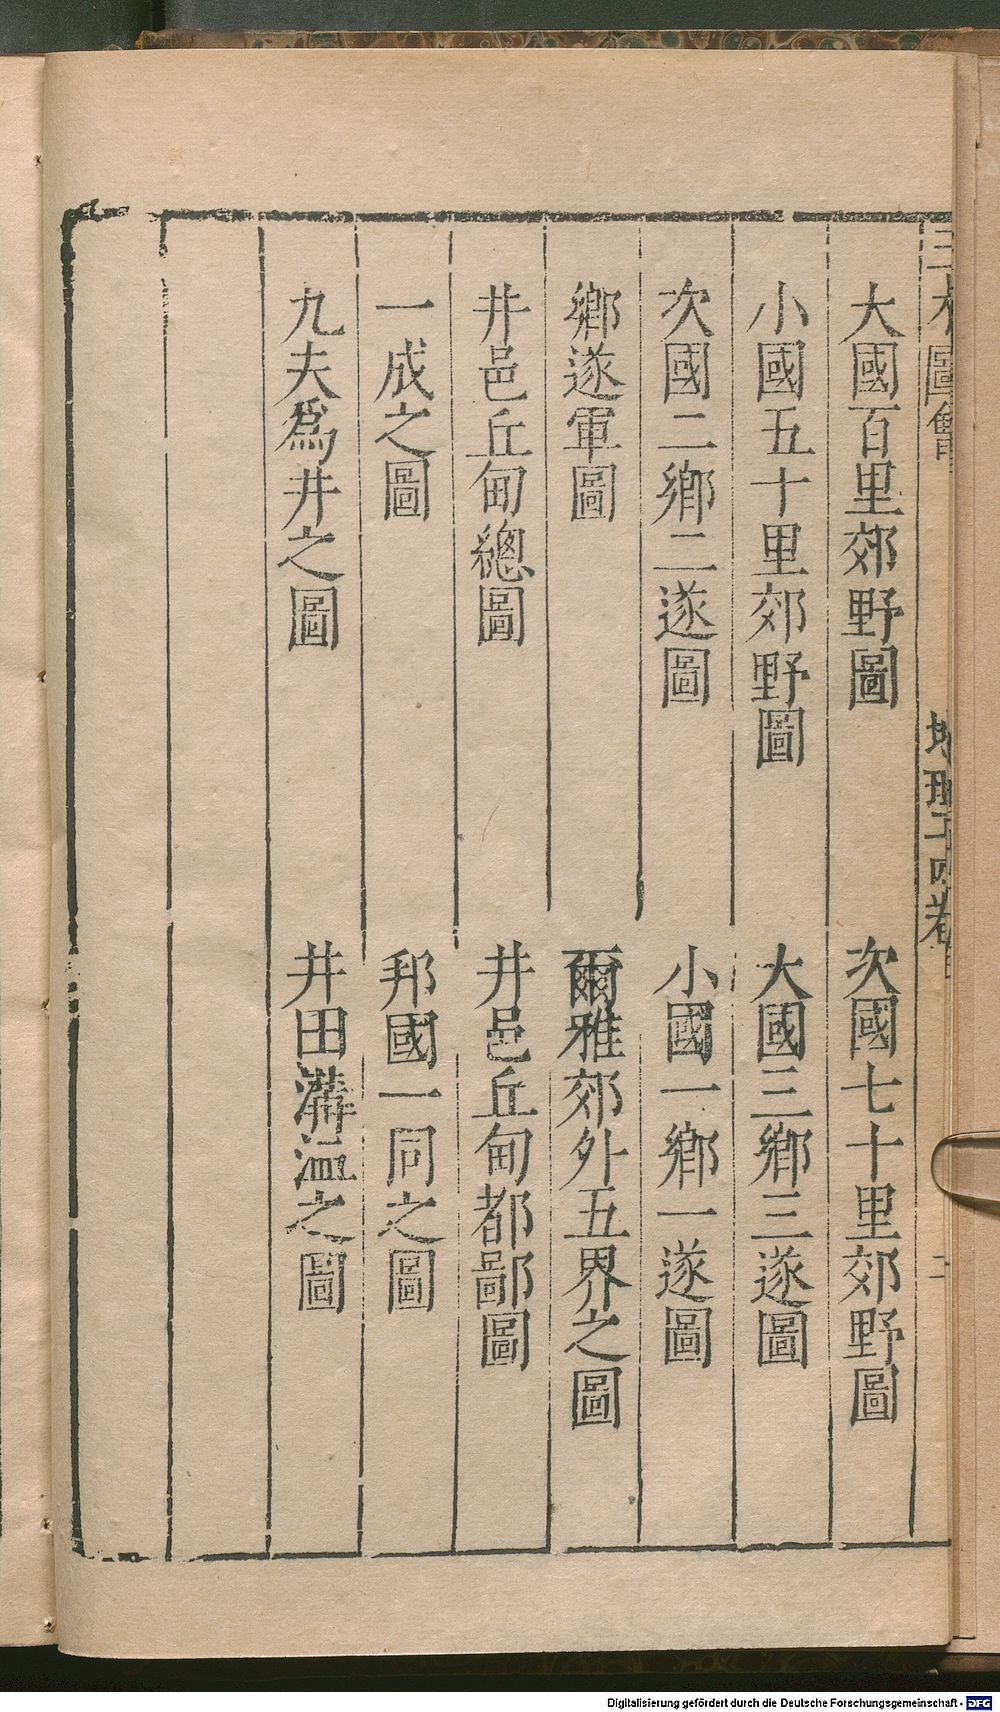 大國百里郊野圖
次國七十里郊野圖
小國五十里郊野圖
大國三鄉三遂圖
次國二鄉二遂圖
小國一鄉一遂圖
鄉遂軍圖
爾雅郊外五界之圖
井邑丘甸總圖
井邑丘甸都鄙圖
一成之圖
邦國一同之圖
九夫爲井之圖
井田溝洫之圖
Digitalisierung gefördert durch die Deutsche Forschungsgemeinschaft - DFG